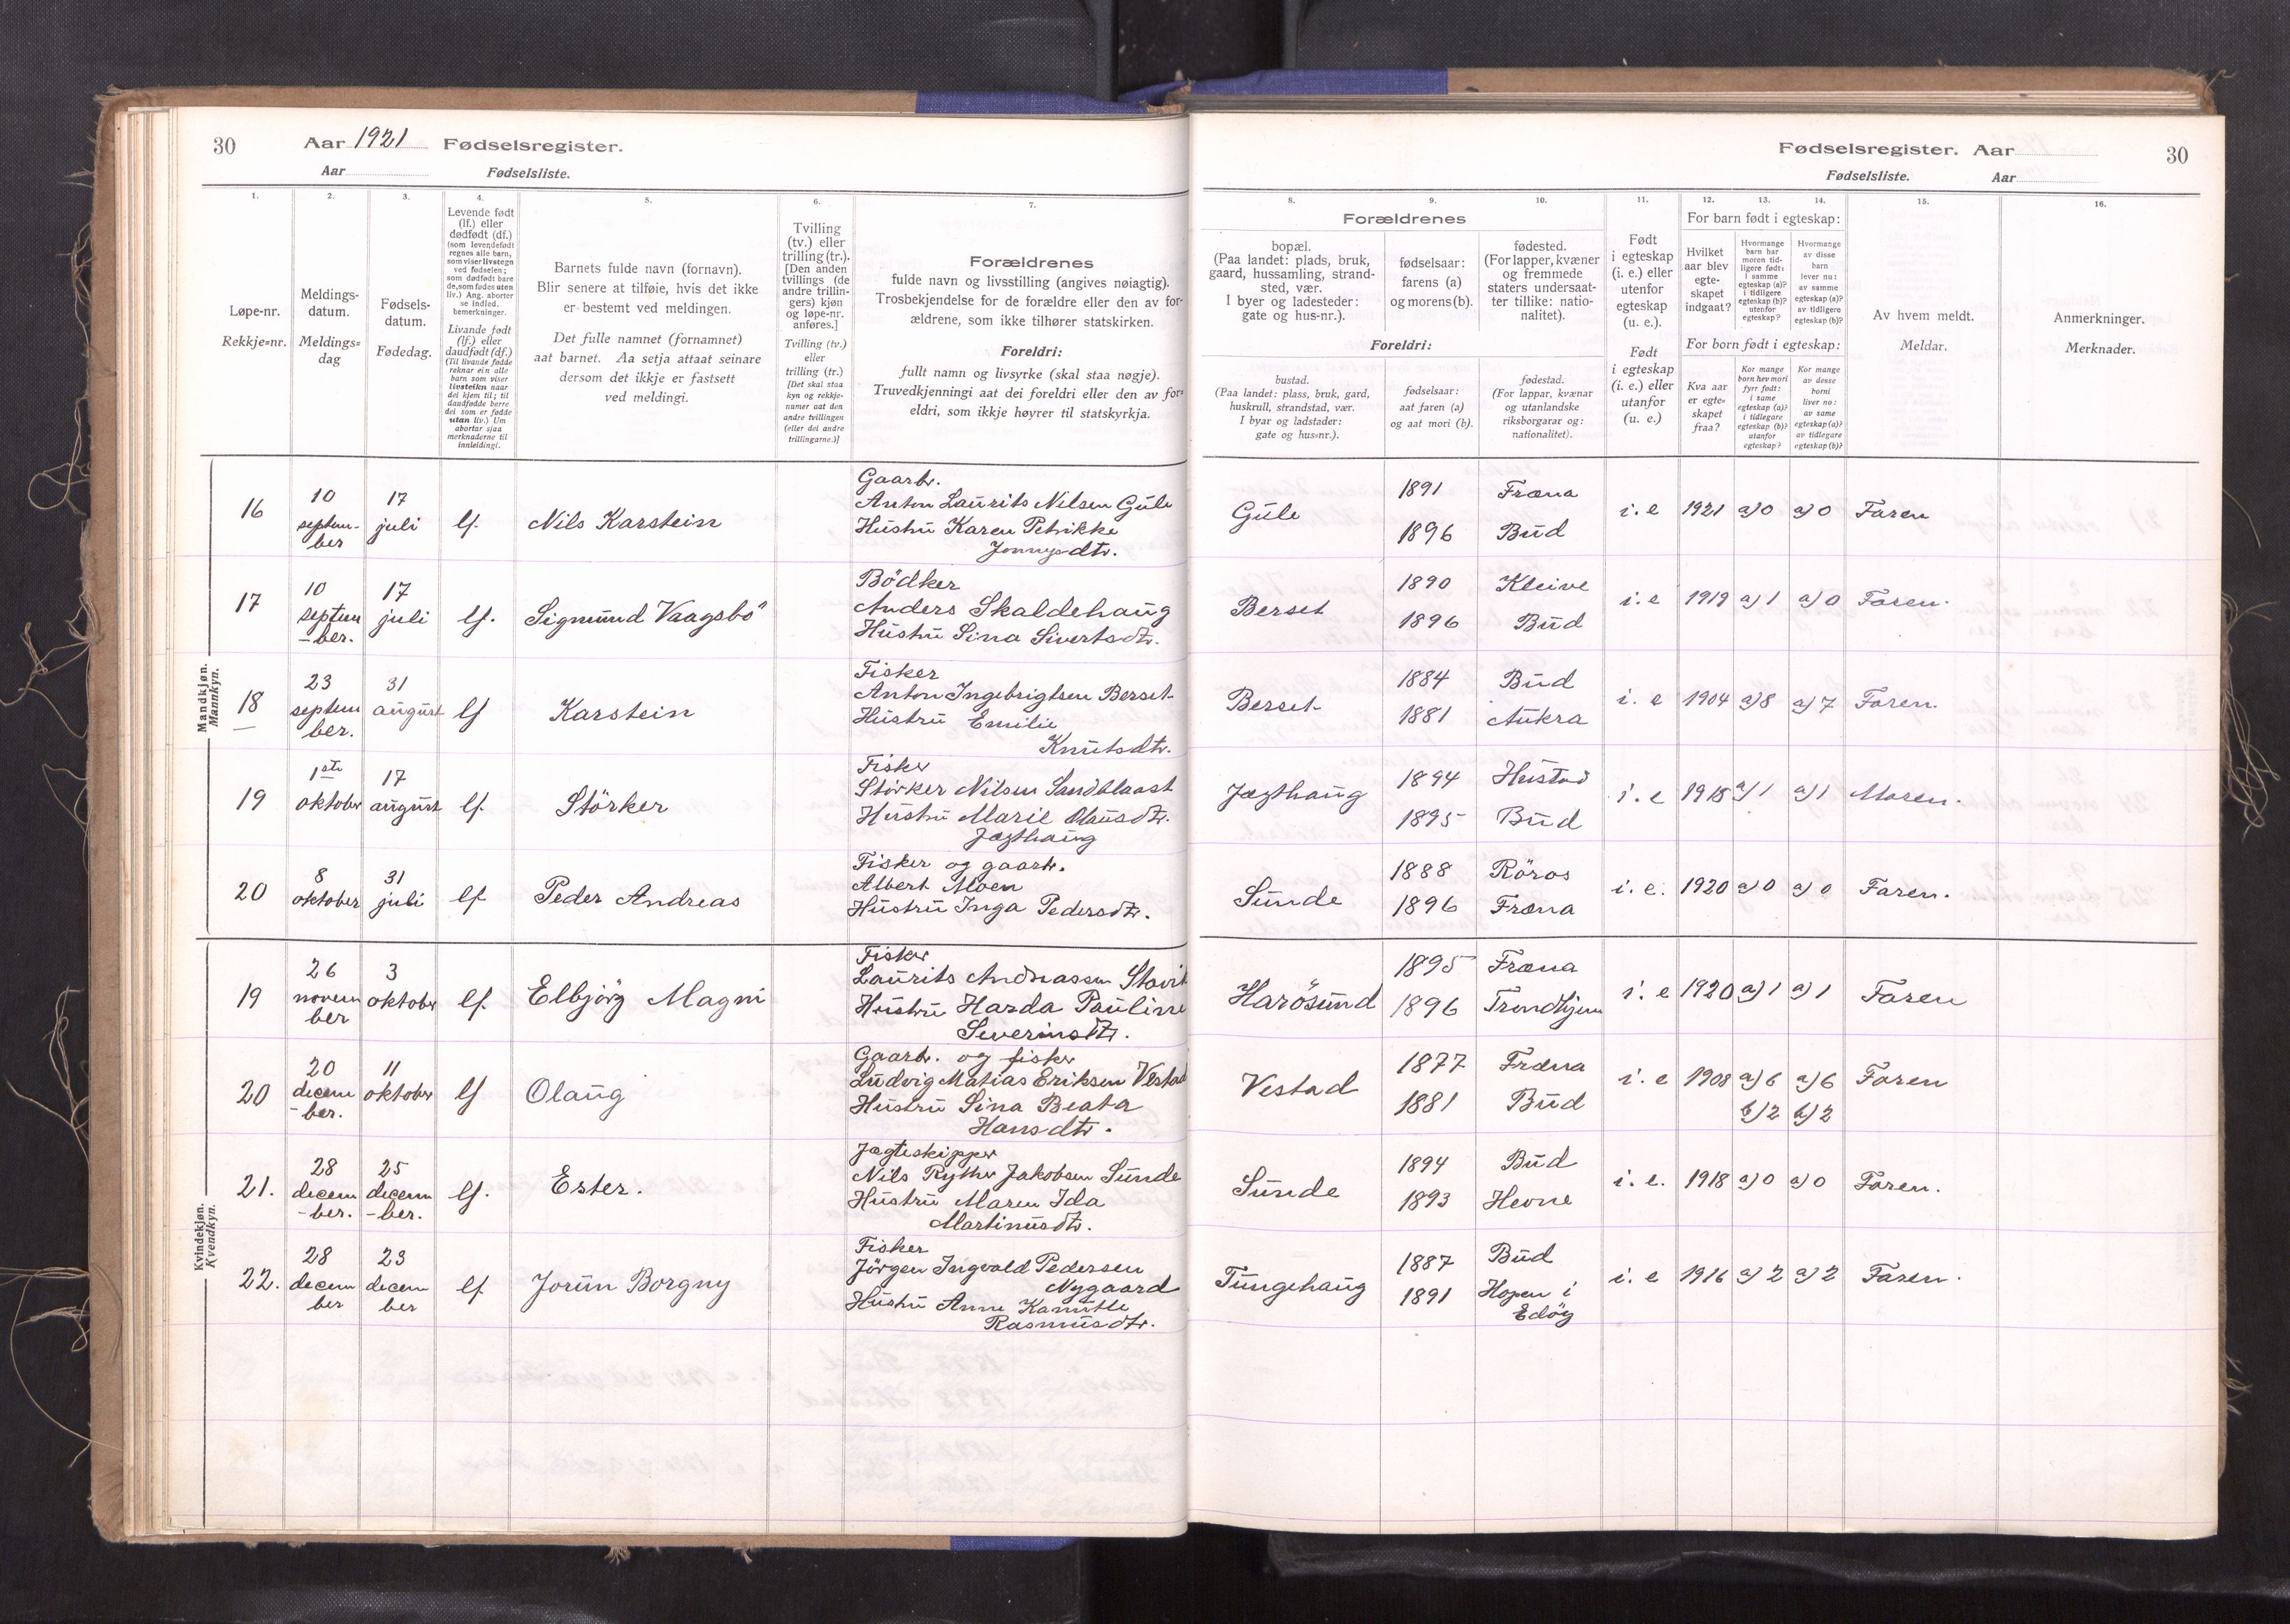 30
Aar 1921 Fødselsregister.
Aar Fødselsliste.
Fødselsregister. Aar
30
Fødselsliste. Aar
1.
Løpe-nr.
Rekkje=nr.
2.
Meldings-
datum.
Meldings=
dag
3.
Fødsels-
datum.
Fødedag.
4.
Levende født
(lf.) eller
dødfødt (df.)
(som levendefødt
regnes alle barn,
som viser livstegn
ved fødselen;
som dødfødt bare
de, som fødes uten
liv.) Ang. aborter
se indled.
bemerkninger.
Livande født
(lf.) eller
daudfødt (df.)
(Til livande fødde
reknar ein alle
barn som viser
livsteikn naar
dei kjem til; til
daudfødde berre
dei som er fødde
utan liv.) Um
abortar sjaa
merknaderne til
innleidingi.
5.
Barnets fulde navn (fornavn).
Blir senere at tilføie, hvis det ikke
er bestemt ved meldingen.
Det fulle namnet (fornamnet)
aat barnet. Aa setja attaat seinare
dersom det ikkje er fastsett
ved meldingi.
6.
Tvilling
(tv.) eller
trilling (tr.).
[Den anden
tvillings (de
andre trillin-
gers) kjøn
og løpe-nr.
anføres.]
Tvilling (tv.)
eller
trilling (tr.)
[Det skal staa
kyn og rekkje-
numer aat den
andre tvillingen
(eller dei andre
trillingarne.)]
7.
Forældrenes
fulde navn og livsstilling (angives nøiagtig).
Trosbekjendelse for de forældre eller den av for-
ældrene, som ikke tilhører statskirken.
Foreldri:
fullt namn og livsyrke (skal staa nøgje).
Truvedkjenningi aat dei foreldri eller den av for=
eldri, som ikkje høyrer til statskyrkja.
Forældrenes
8.
bopæl.
(Paa landet: plads, bruk,
gaard, hussamling, strand-
sted, vær.
I byer og ladesteder:
gate og hus-nr.).
9.
fødselsaar:
farens (a)
og morens (b).
10.
fødested.
(For lapper, kvæner
og fremmede
staters undersaat-
ter tillike: natio-
nalitet).
Foreldri:
bustad.
(Paa landet: plass, bruk, gard,
huskrull, strandstad, vær.
I byar og ladstader:
gate og hus=nr.).
fødselsaar:
aat faren (a)
og aat mori (b).
fødestad.
(For lappar, kvænar
og utanlandske
riksborgarar og:
nationalitet).
11.
Født
i egteskap
(i. e.) eller
utenfor
egteskap
(u. e.).
Født
i egteskap
(i. e.) eller
utanfor
egteskap
(u. e.)
For barn født i egteskap:
12.
Hvilket
aar blev
egte-
skapet
indgaat?
13.
Hvormange
barn har
moren tid-
ligere født:
i samme
egteskap (a)?
i tidligere
egteskap (b)?
utenfor
egteskap?
14.
Hvormange
av disse
barn
lever nu:
av samme
egteskap (a)?
av tidligere
egteskap (b)?
For born født i egteskap:
Kva aar
er egte=
skapet
fraa?
Kor mange
born hev mori
fyrr født:
i same
egteskap (a)?
i tidlegare
egteskap (b)?
utanfor
egteskap?
Kor mange
av desse
borni
liver no:
av same
egteskap (a)?
av tidlegare
egteskap (b)?
15.
Av hvem meldt.
Meldar.
16.
Anmerkninger.
Merknader.
Mandkjøn.
Mannkyn.
16
10
septem-
ber
17
juli
lf.
Nils Karstein
Gaarbr.
Anton Laurits Nilsen Gule
Hustru Karen Petrikke
Jonnysdtr.
Gule
1891 Fræna
1896 Bud
i. e 1921 a) 0 a) 0 Faren
17
10
septem
-ber.
17
juli
lf.
Sigmund Vaagsbö
Bödker
Anders Skaldehaug
Hustru Sina Sivertsdtr.
Berset
1890 Kleive
1896 Bud
i. e 1919 a) 1 a) 0 Faren.
18
23
septem
ber.
31
august
lf
Karstein
Fisker
Anton Ingebrigtsen Berset
Hustru Emilie
Knutsdtr.
Berset
1884 Bud
1881 Aukra
i. e 1904 a) 8 a) 7 Faren.
19
1ste
oktober
17
august
lf.
Störker
Fisker
Störker Nilsen Sandblaast
Hustru Marie Olausdtr.
Jægthaug
Jægthaug
1894 Hustad
1895 Bud
i. e 1918 a) 1 a) 1 Moren.
20
8
oktober
31
juli
lf
Peder Andreas
Fisker og gaarbr.
Albert Moen
Hustru Inga Pedersdtr.
Sunde
1888 Röros
1896 Fræna
i. e. 1920 a) 0 a) 0 Faren.
Kvindekjøn.
Kvendkyn.
19
26
novem
ber
3
oktober
lf.
Elbjörg Magni
Fisker
Laurits Andreassen
Hustru Harda Pauline
Severinsdtr.
Harösund
1895 Fræna
1896 Trondhjem
i. e 1920 a) 1 a) 1 Faren
20
20
decem
-ber.
11
oktober
lf
Olaug
Gaarbr. og fisker
Ludvig Matias Eriksen Vestad
Hustru Sina Beata
Hansdtr.
Vestad
1877 Fræna
1881 Bud
i. e 1908 a) 6 a) 6 Faren
b) 2 b) 2
21.
28
decem
-ber.
25
decem
-ber.
lf.
Ester.
Jægteskipper
Nils Ryther Jakobsen Sunde
Hustru Maren Ida
Martinusdtr.
Sunde
1894 Bud
1893 Hevne
i. e. 1918 a) 0 a) 0 Faren.
22.
28
decem
ber
23
decem
ber
lf.
Jorun Borgny
Fisker
Jörgen Ingvald Pedersen
Nygaard
Hustru Anne Kamille
Rasmusdtr.
Tungehaug
1887 Bud
1891 Hopen i
Edöy
i. e 1916 a) 2 a) 2 Faren.